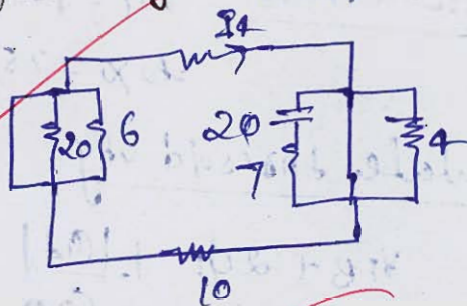 20
6
20
7
4
10